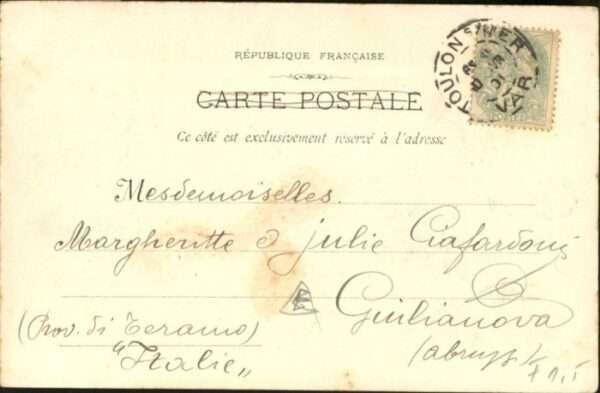 RÉPUBLIQUE FRANÇAISE
CARTE POSTALE
Ce côté est exclusivement réservé à l'adresse
TOULON S/MER
VAR
Mesdemoiselles
Margheritte & Julie Ciafardoni
Giulianova
(Prov. di Teramo)
(abruzz)
"Italie"